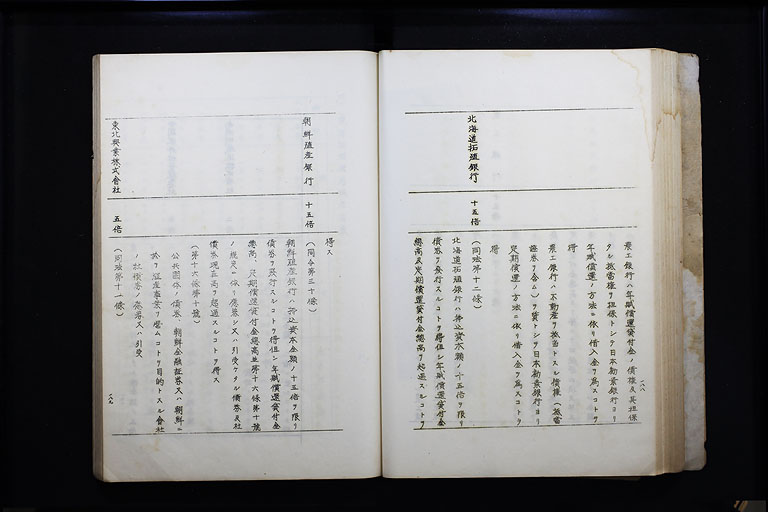 農工銀行ハ年賦償還貸付金ノ債権及其担保
タル抵当権ヲ担保トシテ日本勧業銀行ヨリ
年賦償還ノ方法ニ依リ借入金ヲ為スコトヲ
得
農工銀行ハ不動産ヲ抵当トスル債権（抵当
証券ヲ含ム）ヲ質トシテ日本勧業銀行ヨリ
定期償還ノ方法ニ依リ借入金ヲ為スコトヲ
得
北海道拓殖銀行
十五倍
（同法第十二條）
北海道拓殖銀行ハ払込資本額ノ十五倍ヲ限リ
債券ヲ発行スルコトヲ得但シ年賦償還貸付金
総高及定期償還貸付金総高ヲ超過スルコトヲ
得ス
朝鮮殖産銀行
十五倍
（同令第三十條）
朝鮮殖産銀行ハ払込資本金額ノ十五倍ヲ限リ
債券ヲ発行スルコトヲ得但シ年賦償還貸付金
総高、定期償還貸付金総高並第十六條第十號
ノ規定ニ依リ応募シ又ハ引受ケタル債券及社
債券現在高ヲ超過スルコトヲ得ス
（第十六條第十號）
公共団体ノ債券、朝鮮金融証券又ハ朝鮮ニ
於テ殖産事業ヲ営ムコトヲ目的トスル会社
ノ社債券ノ応募又ハ引受
東北興業株式會社
五倍
（同法第十一條）